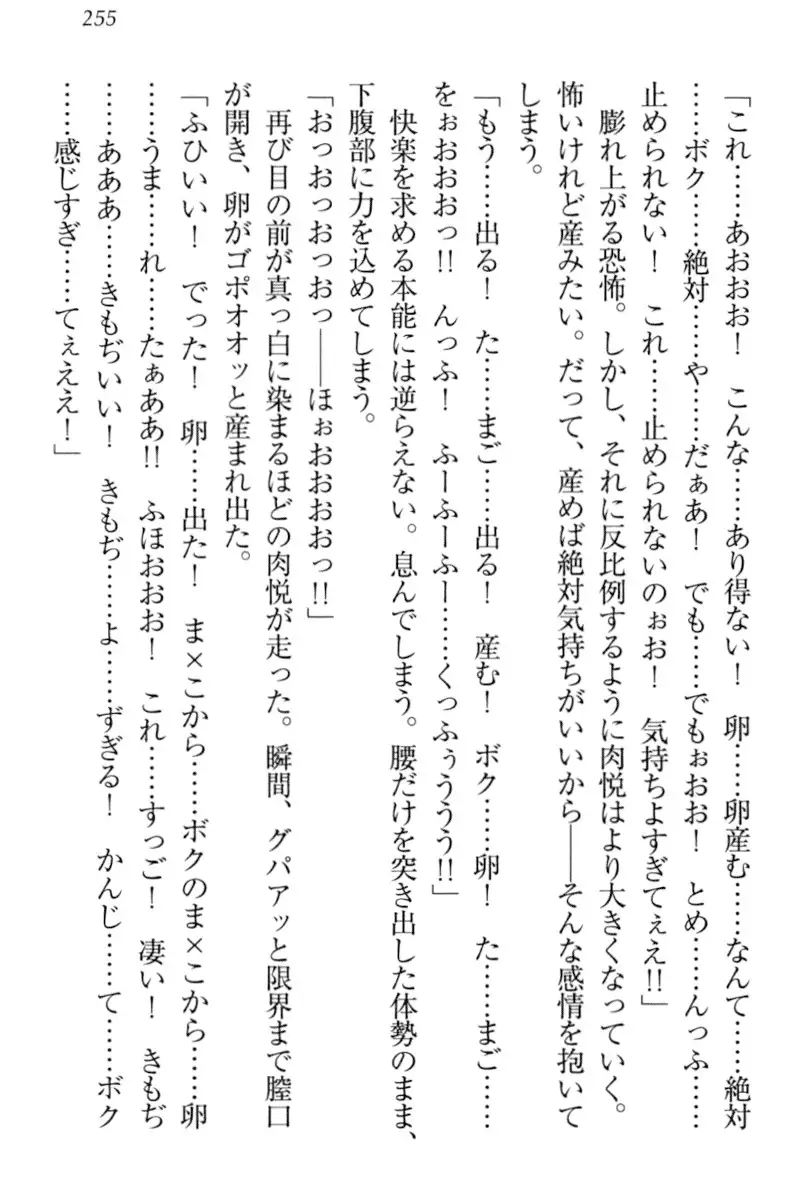 255
「これ……あおおお！　こんな……あり得ない！　卵……卵産む……なんて……絶対
……ボク……絶対……や……だぁあ！　でも……でもぉおお！　とめ……んっふ……
止められない！　これ……止められないのぉお！　気持ちよすぎてぇえ!!」
　膨れ上がる恐怖。しかし、それに反比例するように肉悦はより大きくなっていく。
怖いけれど産みたい。だって、産めば絶対気持ちがいいから――そんな感情を抱いて
しまう。
「もう……出る！　た……まご……出る！　産む！　ボク……卵！　た……まご……
をぉおおおっ!!　んっふ！　ふーふーふー……くっふぅううう!!」
　快楽を求める本能には逆らえない。息んでしまう。腰だけを突き出した体勢のまま、
下腹部に力を込めてしまう。
「おっおっおっおっ――ほぉおおおおっ!!」
　再び目の前が真っ白に染まるほどの肉悦が走った。瞬間、グパアッと限界まで膣口
が開き、卵がゴポオオッと産まれ出た。
「ふひいい！　でった！　卵……出た！　ま×こから……ボクのま×こから……卵
……うま……れ……たぁああ!!　ふほおおお！　これ……すっご！　凄い！　きもぢ
……あああ……きもぢいい！　きもぢ……よ……ずぎる！　かんじ……て……ボク
……感じすぎ……てぇえええ！」